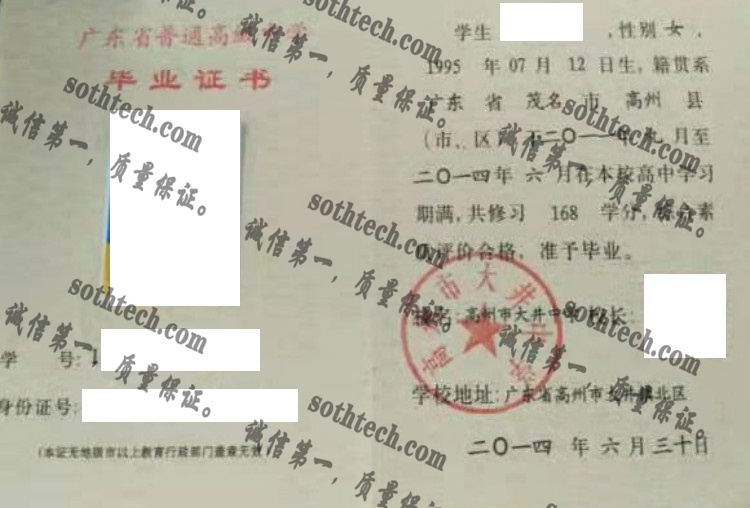 广东省普通高级中学
毕业证书
学 号:
身份证号:
(本证无地级市以上教育行政部门盖章无效)
学生 ,性别 女 ,
1995 年 07 月 12 日生, 籍贯系
广东 省 茂名 市 高州 县
(市、区) 于二〇一一年 九 月至
二〇一四年 六 月在本校高中学习
期满, 共修习 168 学分, 综合素
质评价合格, 准予毕业。
校名: 高州市大井中学 校长:
学校地址: 广东省高州市大井镇北区
二〇一四 年 六 月 三十日
高州市大井中学
sothtech.com
诚信第一,质量保证。
sothtech.com
诚信第一,质量保证。
sothtech.com
诚信第一,质量保证。
sothtech.com
诚信第一,质量保证。
sothtech.com
诚信第一,质量保证。
sothtech.com
诚信第一,质量保证。
sothtech.com
诚信第一,质量保证。
sothtech.com
诚信第一,质量保证。